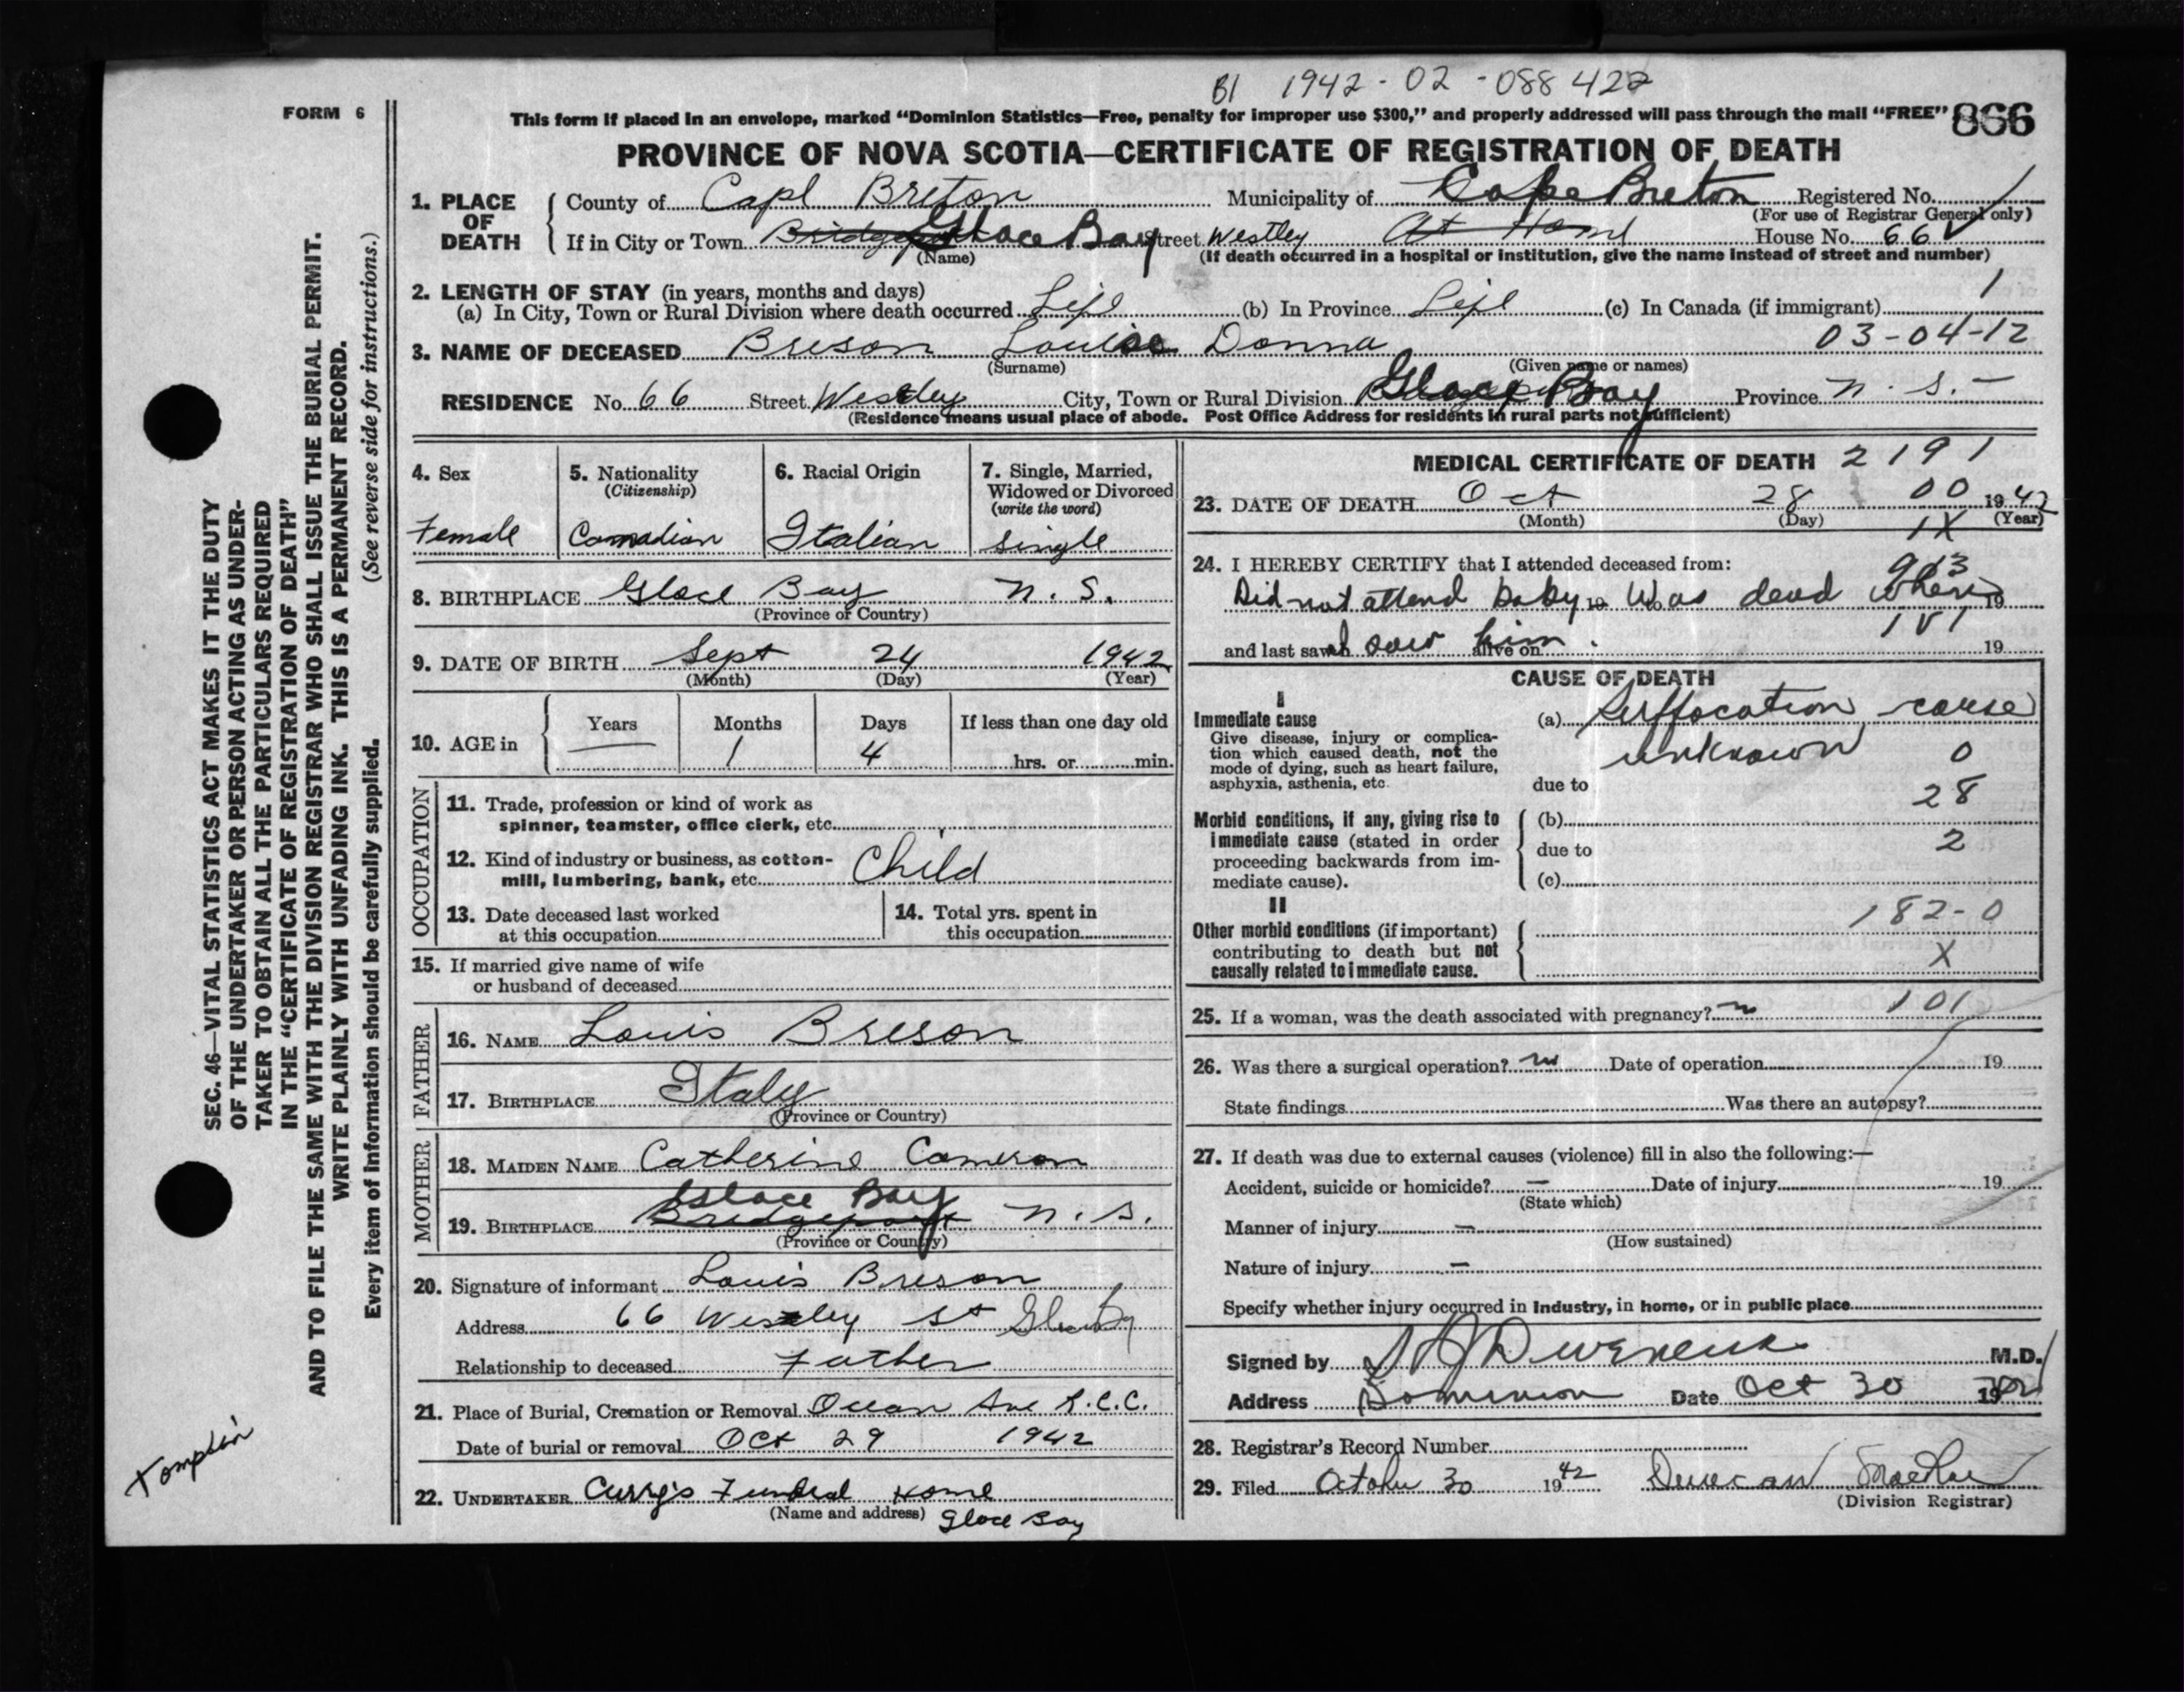 B1 1942-02-088422
FORM 6
This form if placed in an envelope, marked "Dominion Statistics—Free, penalty for improper use $300," and properly addressed will pass through the mail "FREE" 866
PROVINCE OF NOVA SCOTIA—CERTIFICATE OF REGISTRATION OF DEATH
1. PLACE OF DEATH County of Cape Breton Municipality of Cape Breton Registered No.
(For use of Registrar General only)
If in City or Town Bridgeport Glace Bay Street Westley At Home House No. 66
(Name) (If death occurred in a hospital or institution, give the name instead of street and number)
2. LENGTH OF STAY (in years, months and days) 1
(a) In City, Town or Rural Division where death occurred Life (b) In Province Life (c) In Canada (if immigrant)
03-04-12
3. NAME OF DECEASED Breson Louise Donna
(Surname) (Given name or names)
RESIDENCE No. 66 Street Westley City, Town or Rural Division Glace Bay Province N.S.—
(Residence means usual place of abode. Post Office Address for residents in rural parts not sufficient)
4. Sex 5. Nationality (Citizenship) 6. Racial Origin 7. Single, Married, Widowed or Divorced (write the word)
Female Canadian Italian Single
8. BIRTHPLACE Glace Bay N.S.
(Province or Country)
9. DATE OF BIRTH Sept 24 1942
(Month) (Day) (Year)
10. AGE in Years Months Days If less than one day old
— 1 4 hrs. or min.
OCCUPATION
11. Trade, profession or kind of work as
spinner, teamster, office clerk, etc.
12. Kind of industry or business, as cotton-
mill, lumbering, bank, etc. Child
13. Date deceased last worked
at this occupation
14. Total yrs. spent in
this occupation
15. If married give name of wife
or husband of deceased
FATHER
16. NAME Louis Breson
17. BIRTHPLACE Italy
(Province or Country)
MOTHER
18. MAIDEN NAME Catherine Cameron
Glace Bay
19. BIRTHPLACE Bridgeport N.S.
(Province or Country)
20. Signature of informant Louis Breson
Address 66 Wesley St Glace Bay
Relationship to deceased Father
21. Place of Burial, Cremation or Removal Ocean Ave R.C.C.
Date of burial or removal Oct 29 1942
22. UNDERTAKER Curry's Funeral Home
(Name and address) Glace Bay
MEDICAL CERTIFICATE OF DEATH 2191
23. DATE OF DEATH Oct 28 00 1942
(Month) (Day) (Year)
1X
24. I HEREBY CERTIFY that I attended deceased from:
913
Did not attend baby 19 Was dead when 19
and last saw I saw him alive on 19
CAUSE OF DEATH
I
Immediate cause
Give disease, injury or complica-
tion which caused death, not the
mode of dying, such as heart failure,
asphyxia, asthenia, etc.
(a) Suffocation cause
unknown 0
due to
28
Morbid conditions, if any, giving rise to
immediate cause (stated in order
proceeding backwards from im-
mediate cause).
(b)
due to 2
(c)
II
182-0
Other morbid conditions (if important)
contributing to death but not
causally related to immediate cause.
X
25. If a woman, was the death associated with pregnancy? no 101
26. Was there a surgical operation? no Date of operation 19
State findings Was there an autopsy?
27. If death was due to external causes (violence) fill in also the following:—
Accident, suicide or homicide? — Date of injury 19
(State which)
Manner of injury —
(How sustained)
Nature of injury —
Specify whether injury occurred in industry, in home, or in public place
Signed by M.D.
Address Dominion Date Oct 30 1942
28. Registrar's Record Number
29. Filed October 30 1942 Duncan MacRae
(Division Registrar)
SEC. 46—VITAL STATISTICS ACT MAKES IT THE DUTY
OF THE UNDERTAKER OR PERSON ACTING AS UNDER-
TAKER TO OBTAIN ALL THE PARTICULARS REQUIRED
IN THE "CERTIFICATE OF REGISTRATION OF DEATH"
AND TO FILE THE SAME WITH THE DIVISION REGISTRAR WHO SHALL ISSUE THE BURIAL PERMIT.
WRITE PLAINLY WITH UNFADING INK. THIS IS A PERMANENT RECORD.
Every item of information should be carefully supplied. (See reverse side for instructions.)